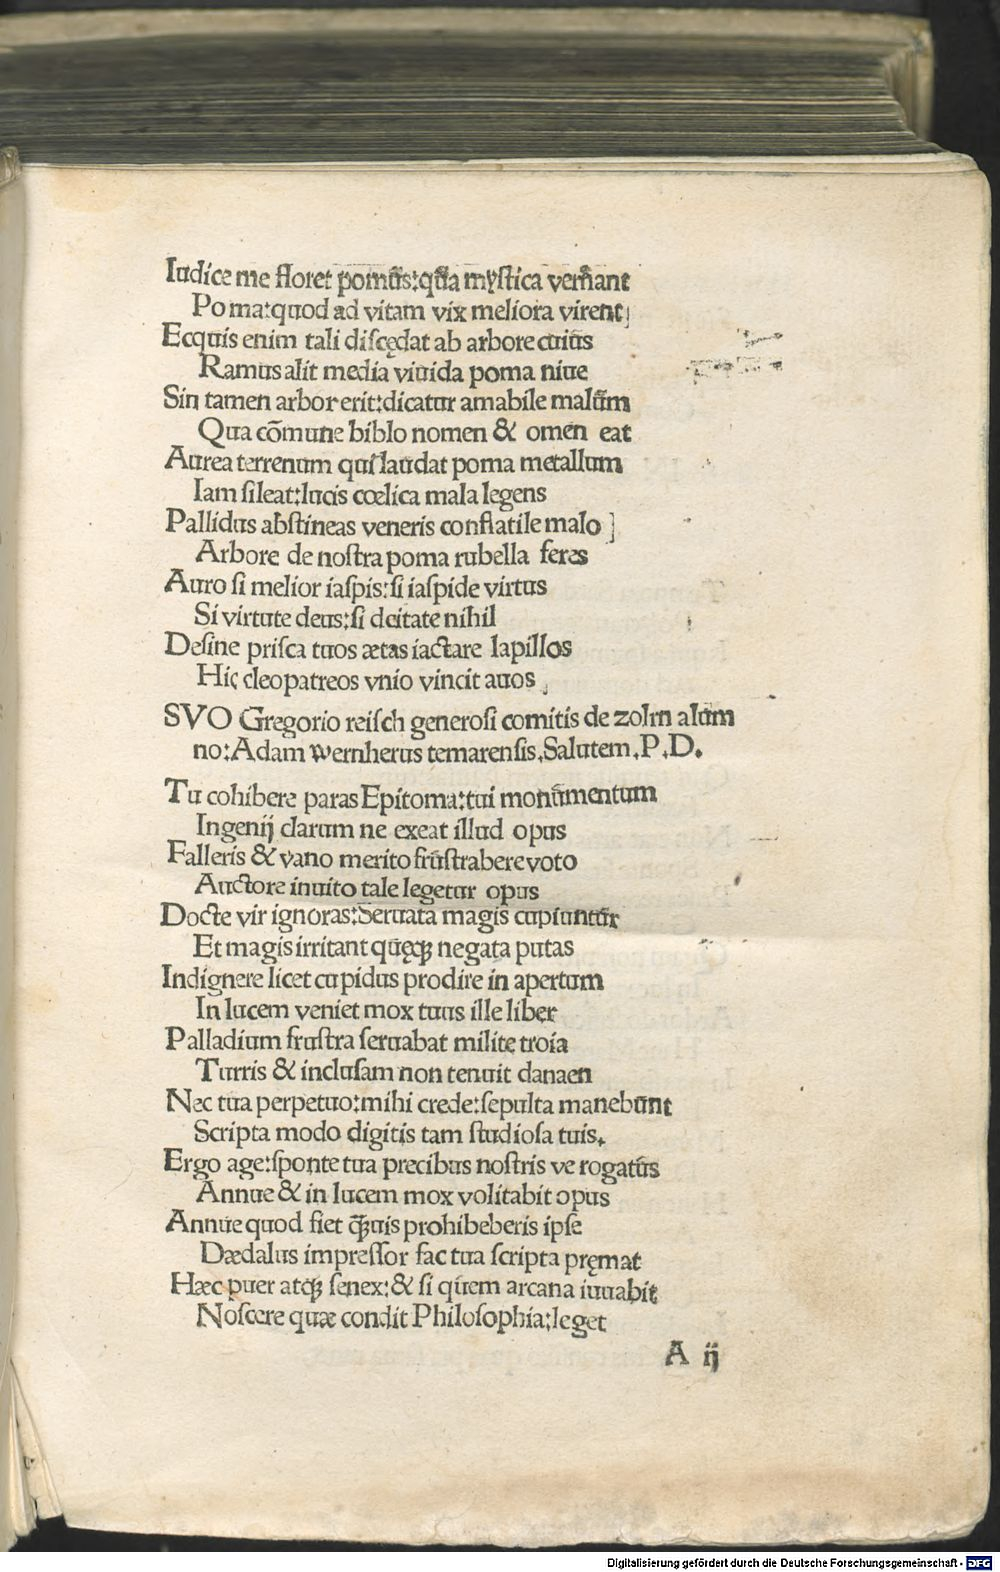 Iudice me floret pomūs:qūa mystica verñant
Poma:quod ad vitam vix meliora virent
Ecquis enim tali discędat ab arbore cuius
Ramus alit media viuida poma niue
Sin tamen arbor erit:dicatur amabile malūm
Qua cōmune biblo nomen & omen eat
Aurea terrenum qui laudat poma metallum
Iam sileat:lucis cœlica mala legens
Pallidus abstineas veneris conflatile malo
Arbore de nostra poma rubella feres
Auro si melior iaspis:si iaspide virtus
Si virtute deus:si deitate nihil
Desine prisca tuos ætas iactare lapillos
Hic cleopatreos vnio vincit auos
SVO Gregorio reisch generosi comitis de zolrn alum
no:Adam wernherus temarensis.Salutem.P.D.
Tu cohibere paras Epitoma:tui monūmentum
Ingenij clarum ne exeat illud opus
Falleris & vano merito frūstrabere voto
Auctore inuito tale legetur opus
Docte vir ignoras:Seruata magis cupiuntūr
Et magis irritant quęqꝫ negata putas
Indignere licet cupidus prodire in apertum
In lucem veniet mox tuus ille liber
Palladium frustra seruabat milite troia
Turris & inclusam non tenuit danaen
Nec tua perpetuo:mihi crede:sepulta manebūnt
Scripta modo digitis tam studiosa tuis.
Ergo age:sponte tua precibus nostris ve rogatūs
Annue & in lucem mox volitabit opus
Annue quod fiet qꝫuis prohibeberis ipse
Dædalus impressor fac tua scripta pręmat
Hæc puer atqꝫ senex:& si quem arcana iuuabit
Noscere quæ condit Philosophia:leget
A ij
Digitalisierung gefördert durch die Deutsche Forschungsgemeinschaft - DFG